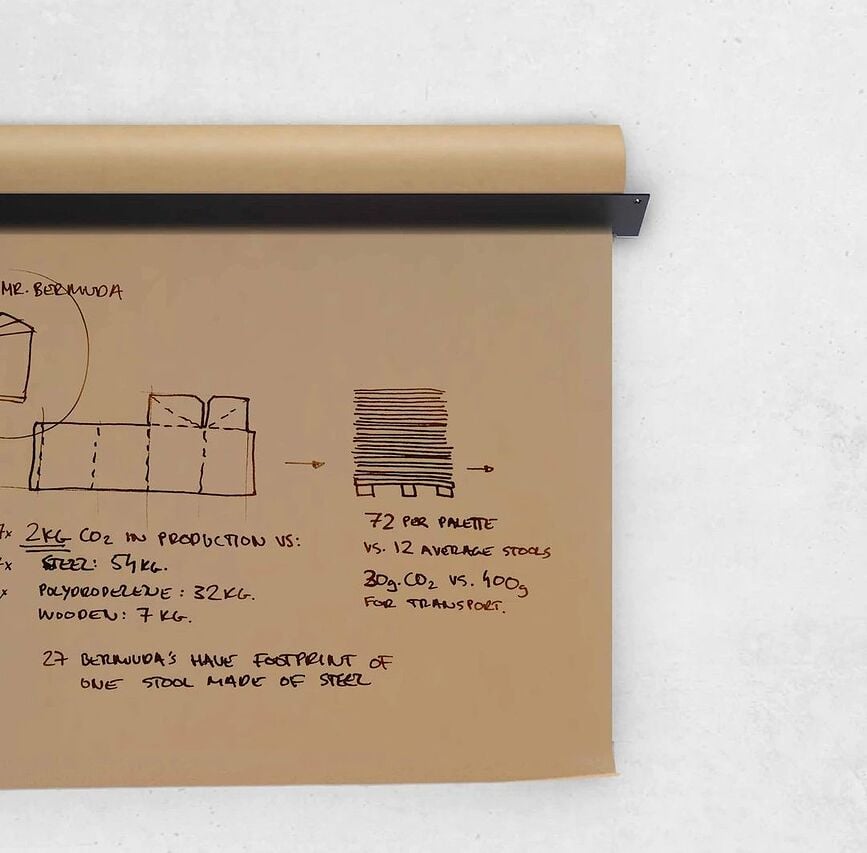 MR. BERMUDA
7x 2KG CO2 IN PRODUCTION VS:
x STEEL: 54KG.
x POLYPROPELENE: 32KG.
WOODEN: 7 KG.
27 BERMUDA'S HAVE FOOTPRINT OF
ONE STOOL MADE OF STEEL
72 PER PALETTE
VS. 12 AVERAGE STOOLS
30g.CO2 VS. 400g
FOR TRANSPORT.